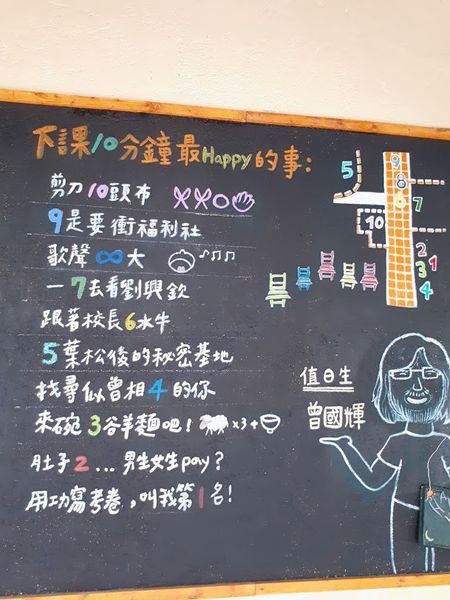 下課10分鐘最Happy的事：
剪刀10頭布
9是要衝福利社
歌聲∞大
一7去看劉興欽
跟著校長6水牛
5葉松後的秘密基地
找尋似曾相4的你
來碗3谷羊麵吧！x3+
肚子2...男生女生pay？
用功寫考卷，叫我第1名！
9
8
5
6
7
10
2
1
3
4
值日生
曾國輝